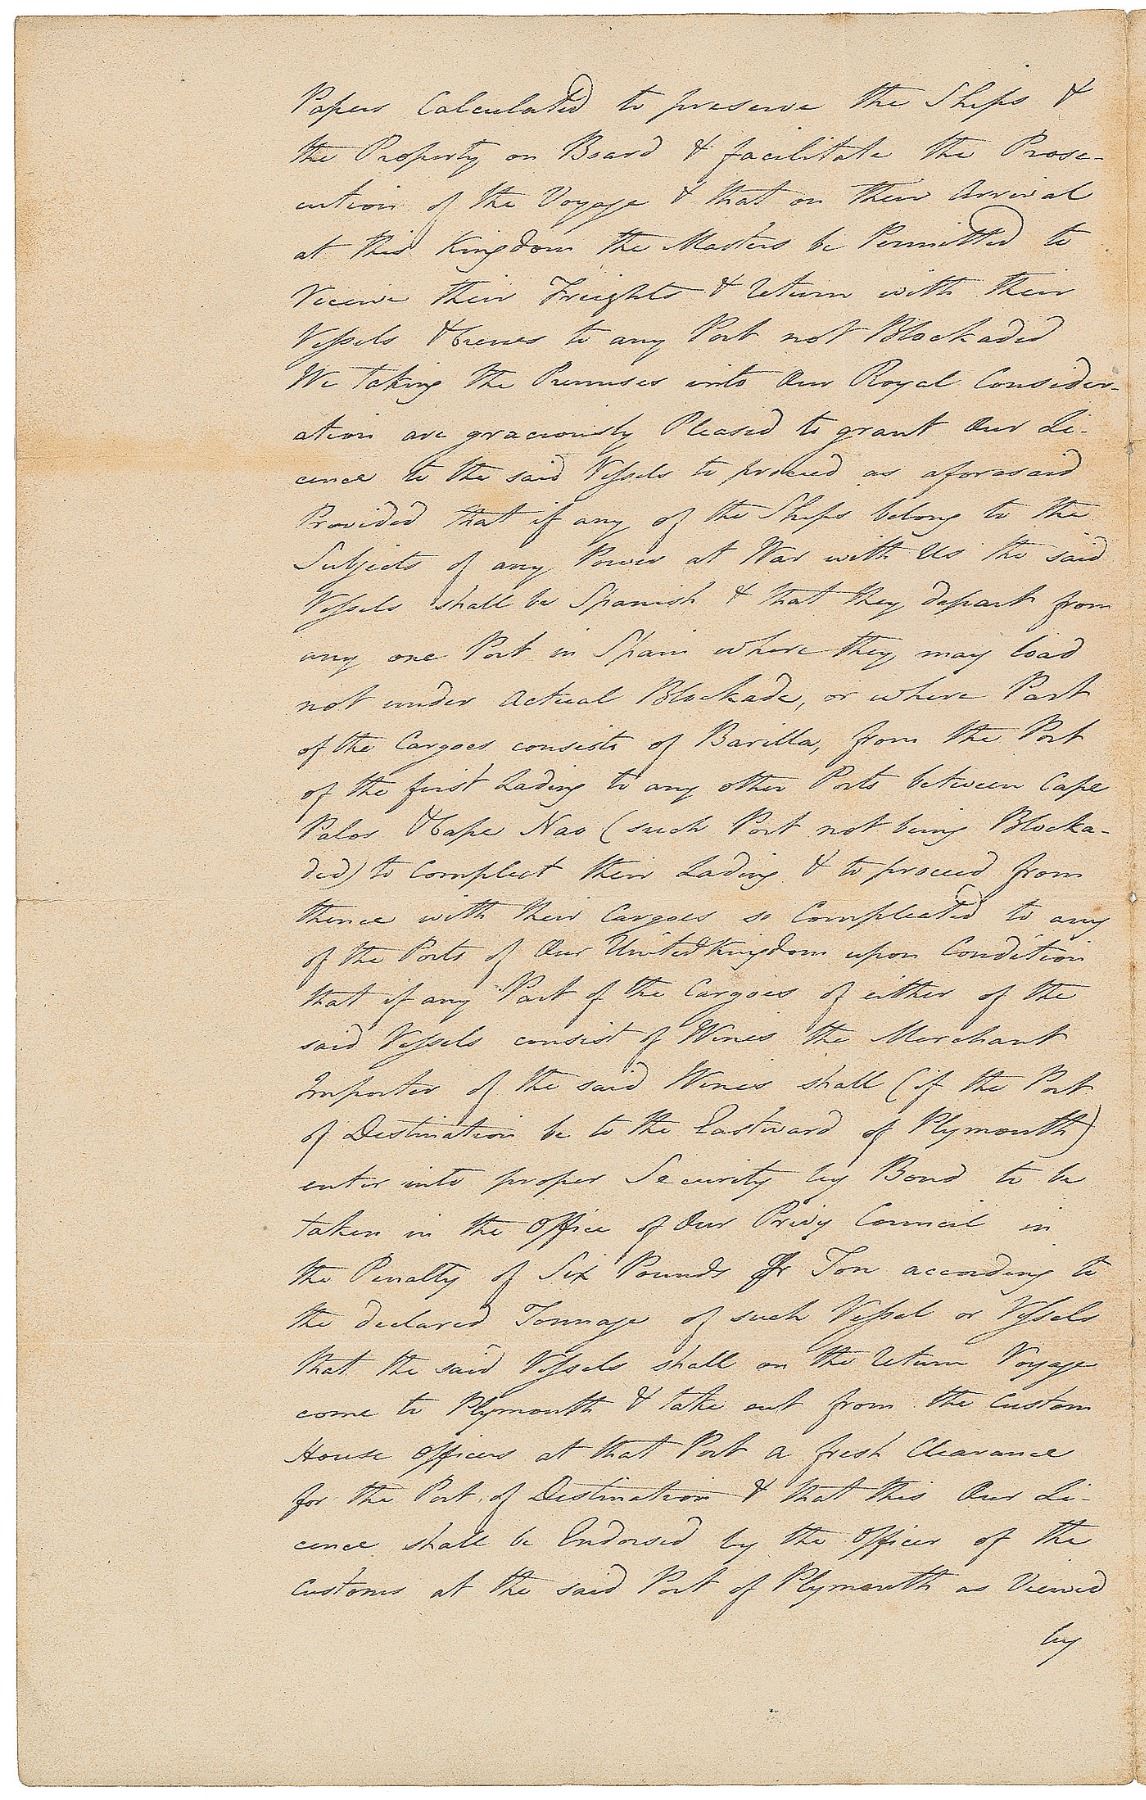 Papers Calculated to preserve the Ships &
the Property on Board & facilitate the Prose-
cution of the Voyage & that on their Arrival
at this Kingdom the Masters be Permitted to
receive their Freights & return with their
Vessels & Crews to any Port not Blockaded
We taking the Premises into Our Royal Consider-
ation are graciously Pleased to grant Our Li-
cence to the said Vessels to proceed as aforesaid
Provided that if any of the Ships belong to the
Subjects of any Power at War with Us the said
Vessels shall be Spanish & that they depart from
any one Port in Spain where they may load
not under Actual Blockade, or where Part
of the Cargoes consists of Barilla, from the Port
of the first Lading to any other Ports between Cape
Palos & Cape Nao (such Port not being Blocka-
ded) to Compleat their Lading & to proceed from
thence with their Cargoes so Compleated to any
of the Ports of Our United Kingdom upon Condition
that if any Part of the Cargoes of either of the
said Vessels consist of Wines the Merchant
Importer of the said Wines shall (if the Port
of Destination be to the Eastward of Plymouth)
enter into proper Security by Bond to be
taken in the Office of Our Privy Council in
the Penalty of Six Pounds Pr Ton according to
the declared Tonnage of such Vessel or Vessels
that the said Vessels shall on the return Voyage
come to Plymouth & take out from the Custom
House Officers at that Port a fresh Clearance
for the Port of Destination & that this Our Li-
cence shall be Endorsed by the Officer of the
Customs at the said Port of Plymouth as Viewed
by